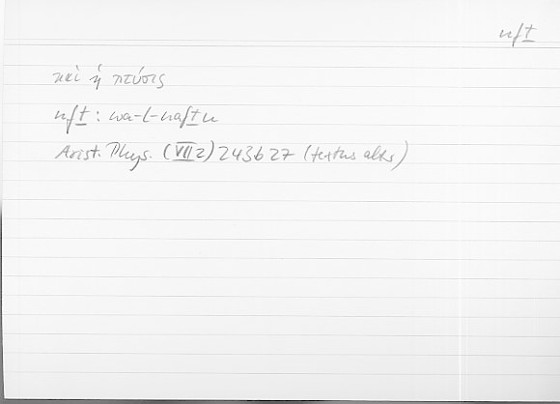 nfṯ
καὶ ἡ πτύσις
nfṯ : wa-l-nafṯu
Arist. Phys. (VII 2) 243b27 (textus alter)